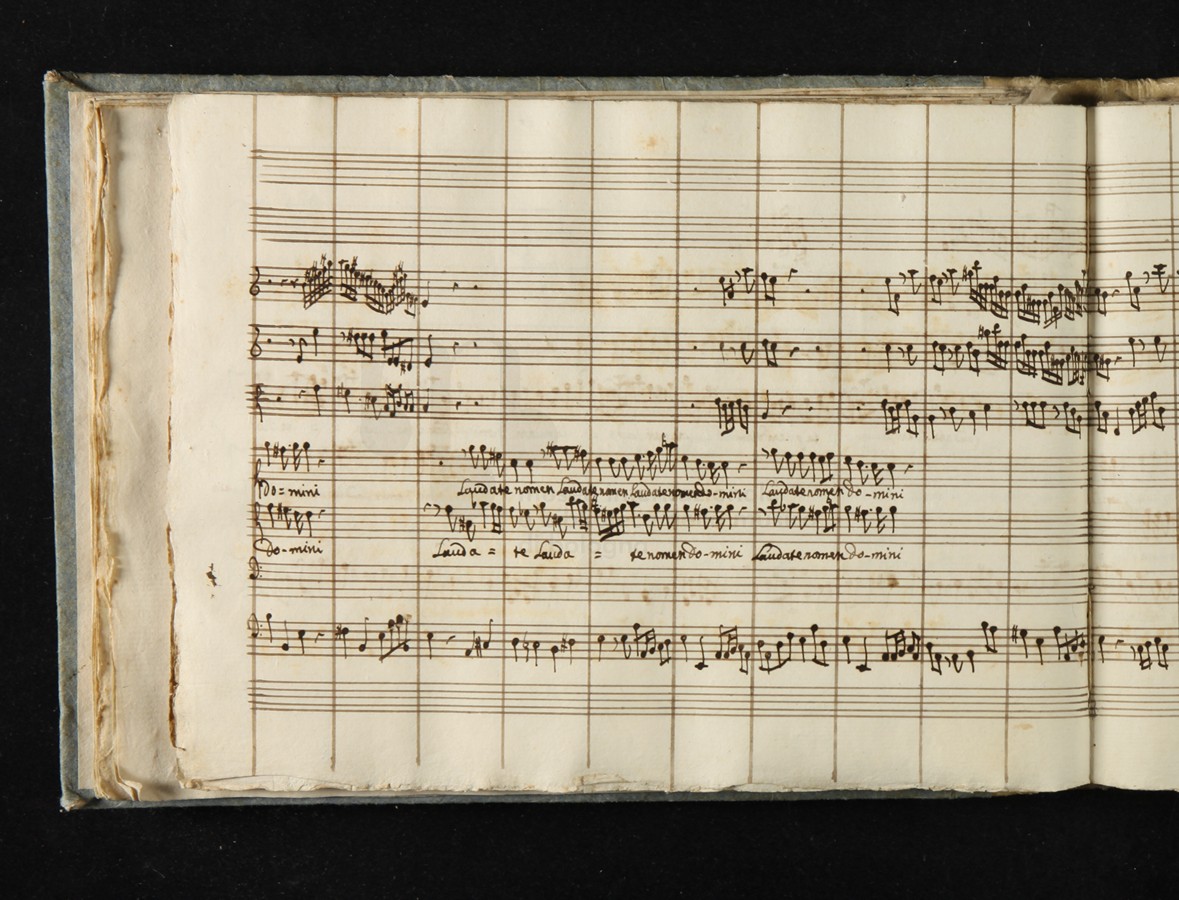 Do = mini Laudate nomen Laudate nomen laudate nomen do - mini Laudate nomen do - mini
do - mini Lauda = te Lauda = te nomen do - mini Laudate nomen do - mini